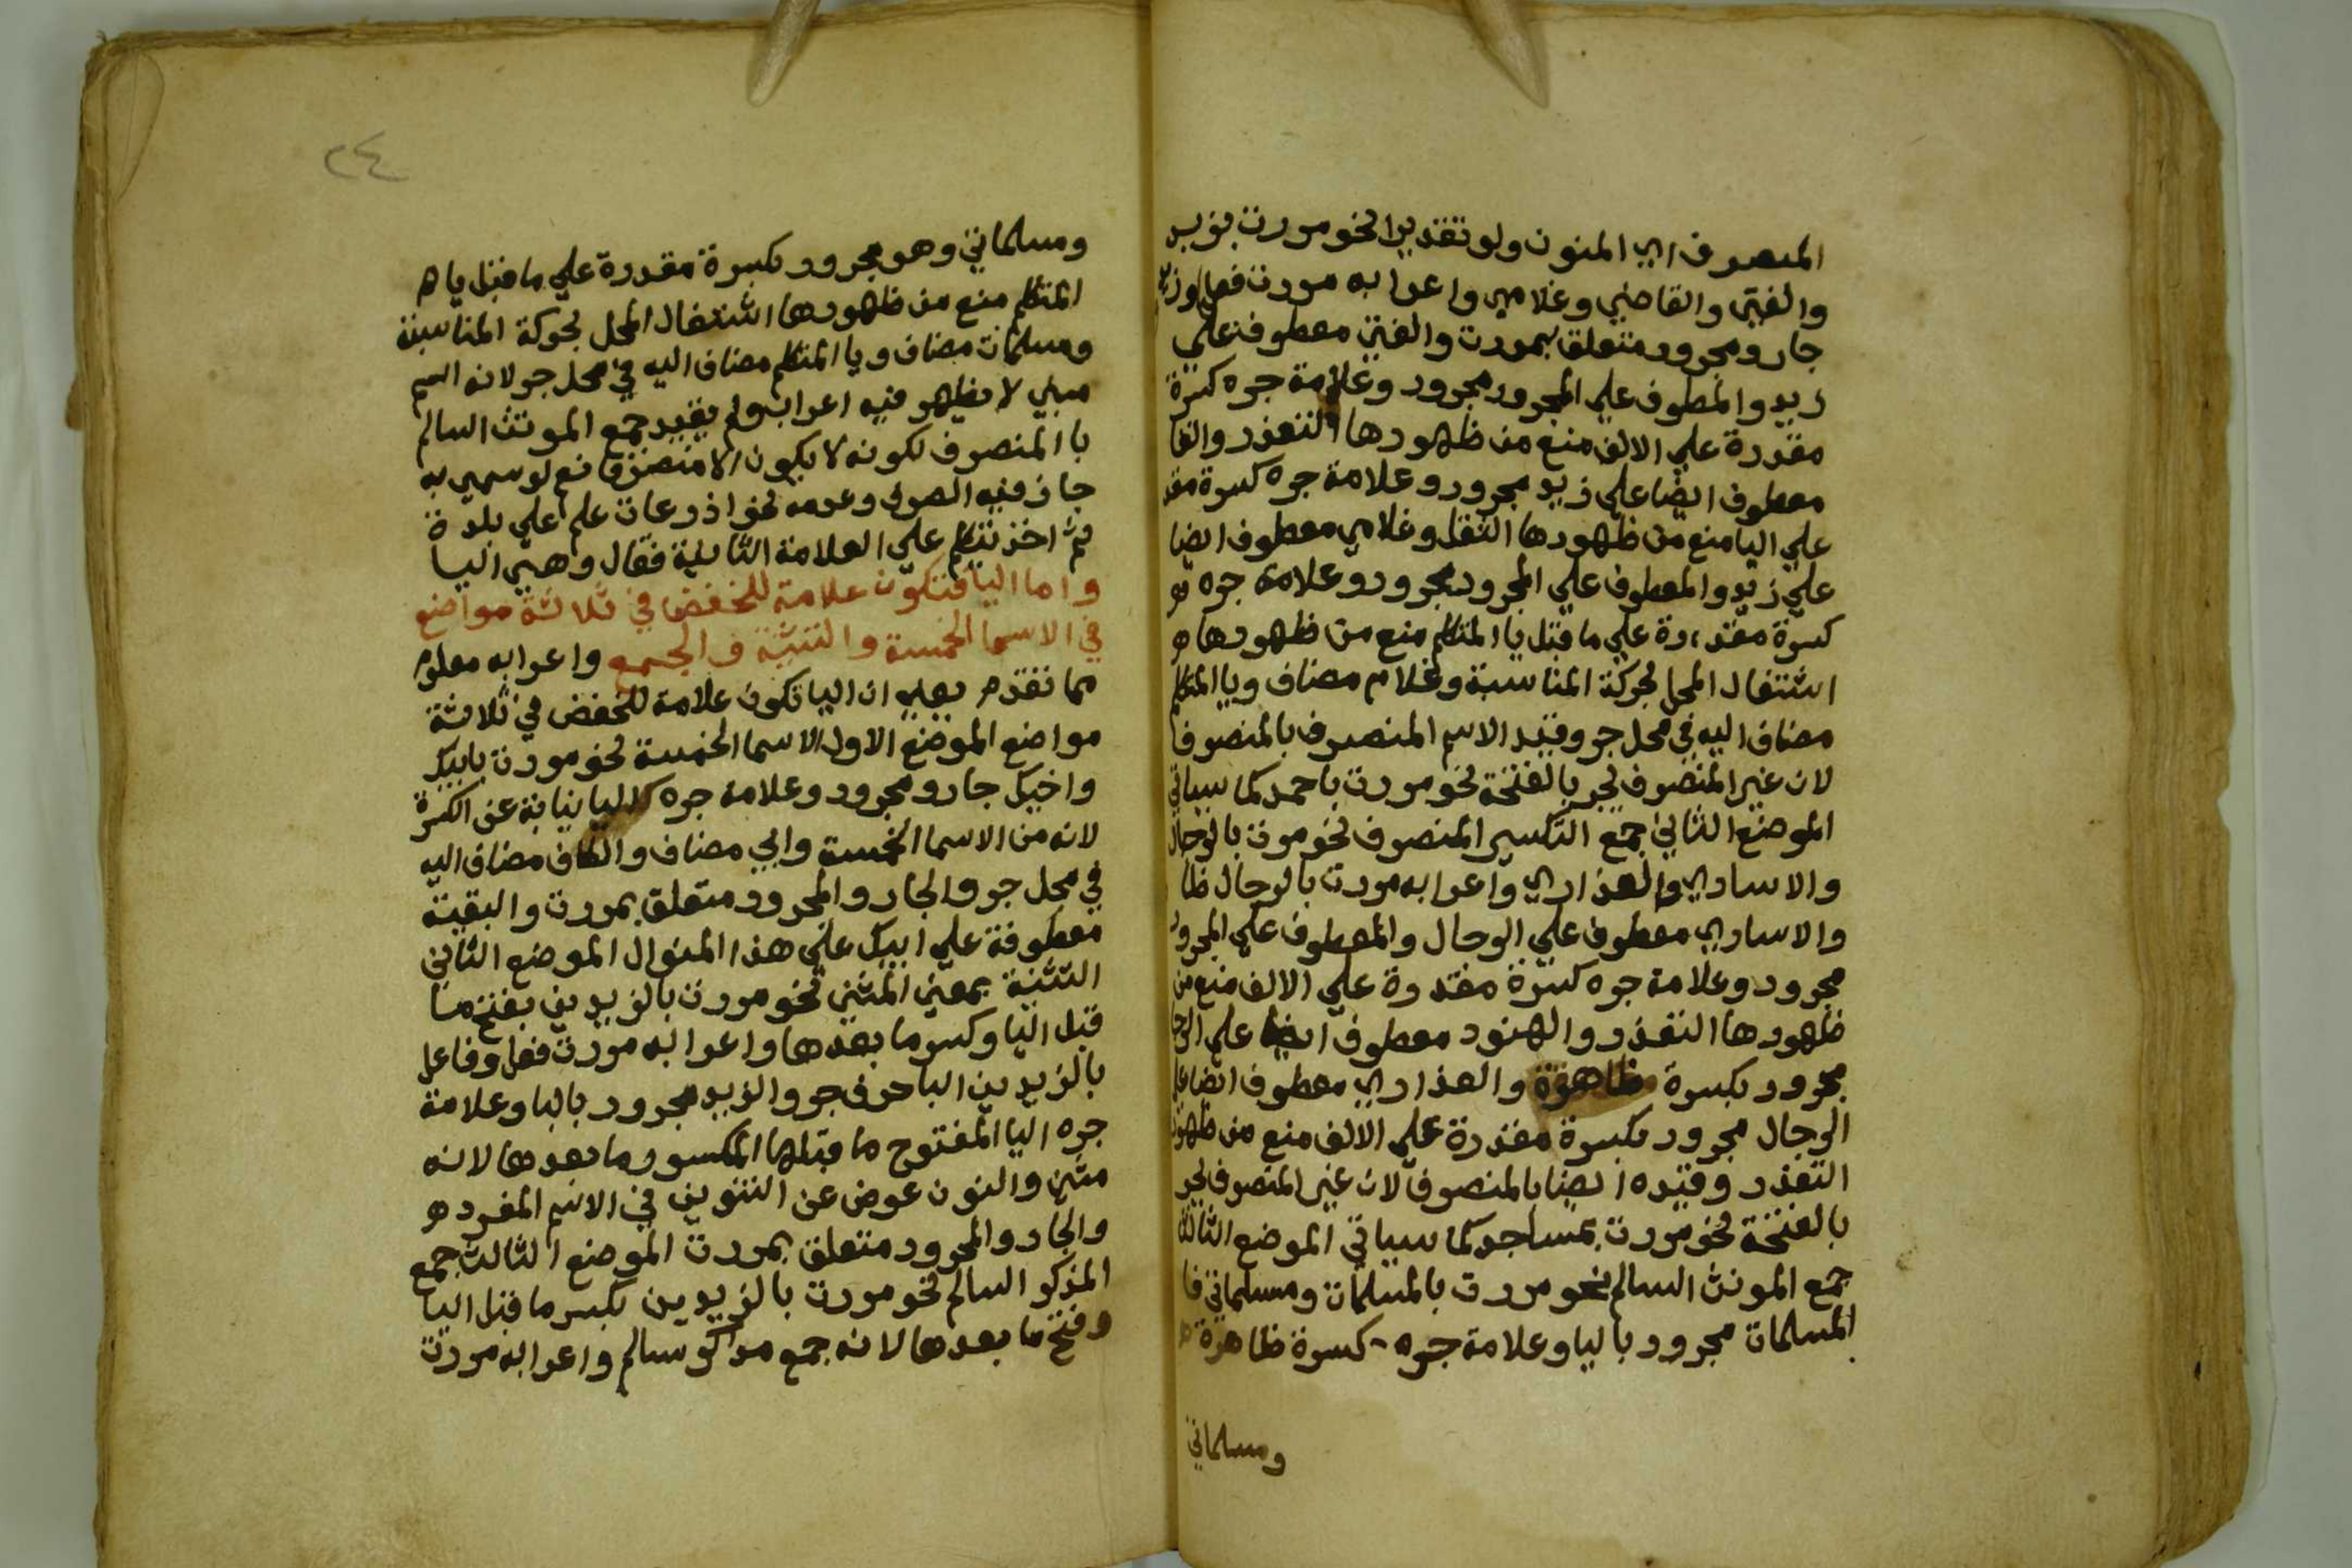 المنصرف اي المنون ولو تقديرا نحو مررت بزيد
والفتى والقاضي وغلامي واعرابه مررت فعل
جار ومجرور متعلق بمررت والفتى معطوف علي
زيد والمعطوف علي المجرور مجرور وعلامة جره كسرة
مقدرة علي الالف منع من ظهورها التعذر والقا
معطوف ايضا علي زيد مجرور وعلامة جره كسرة مقد
علي اليا منع من ظهورها الثقل وغلامي معطوف ايضا
علي زيد والمعطوف علي المجرور مجرور وعلامة جره
كسرة مقدرة علي ما قبل يا المتكلم منع من ظهورها
اشتغال المحل بحركة المناسبة وغلام مضاف ويا المتكلم
مضاف اليه في محل جر وقيد الاسم المنصرف بالمنصرف
لان غير المنصرف يجر بالفتحة نحو مررت باحمد كما سياتي
الموضع الثاني جمع التكسير المنصرف نحو مررت بالرجال
والاساري والعذاري واعرابه مررت بالرجال ظا
والاساري معطوف علي الرجال والمعطوف علي المجرور
مجرور وعلامة جره كسرة مقدرة علي الالف منع من
ظهورها التعذر والهنود معطوف ايضا علي الرجا
مجرور بكسرة ظاهرة والعذاري معطوف ايضا علي
الرجال مجرور بكسرة مقدرة علي الالف منع من ظهور
التعذر وقيده ايضا بالمنصرف لان غير المنصرف يجر
بالفتحة نحو مررت بمساجد كما سياتي الموضع الثالث
جمع المونث السالم نحو مررت بالمسلمات ومسلماتي فا
المسلمات مجرور باليا وعلامة جره كسرة ظاهرة
ومسلماتي
٢٤
ومسلماتي وهو مجرور بكسرة مقدرة علي ما قبل يا
المتكلم منع من ظهورها اشتغال المحل بحركة المناسبة
ومسلمات مضاف ويا المتكلم مضاف اليه في محل جر لانه اسم
مبني لا يظهر فيه اعراب ولم يقيد جمع المونث السالم
با المنصرف لكونه لا يكون الا منصرفا نعم لو سمي به
جاز فيه الصرف وعدمه نحو اذرعات علم علي بلدة
ثم اخذ يتكلم علي العلامة الثانية فقال وهي اليا
واما اليا فتكون علامة للخفض في ثلاثة مواضع
في الاسما الخمسة والتثنية والجمع واعرابه معلوم
مما تقدم يعني ان اليا تكون علامة للخفض في ثلاثة
مواضع الموضع الاول الاسما الخمسة نحو مررت بابيك
واخيك جار ومجرور وعلامة جره اليا نيابة عن الكسرة
لانه من الاسما الخمسة وابي مضاف والكاف مضاف اليه
في محل جر والجار والمجرور متعلق بمررت والبقية
معطوفة علي ابيك علي هذا المنوال الموضع الثاني
التثنية بمعني المثني نحو مررت بالزيدين بفتح ما
قبل اليا وكسر ما بعدها واعرابه مررت فعل وفاعل
بالزيدين البا حرف جر والزيد مجرور بالبا وعلامة
جره اليا المفتوح ما قبلها المكسور ما بعدها لانه
مثني والنون عوض عن التنوين في الاسم المفرد
والجار والمجرور متعلق بمررت الموضع الثالث جمع
المذكر السالم نحو مررت بالزيدين بكسر ما قبل اليا
وفتح ما بعدها لانه جمع مذكر سالم واعرابه مررت